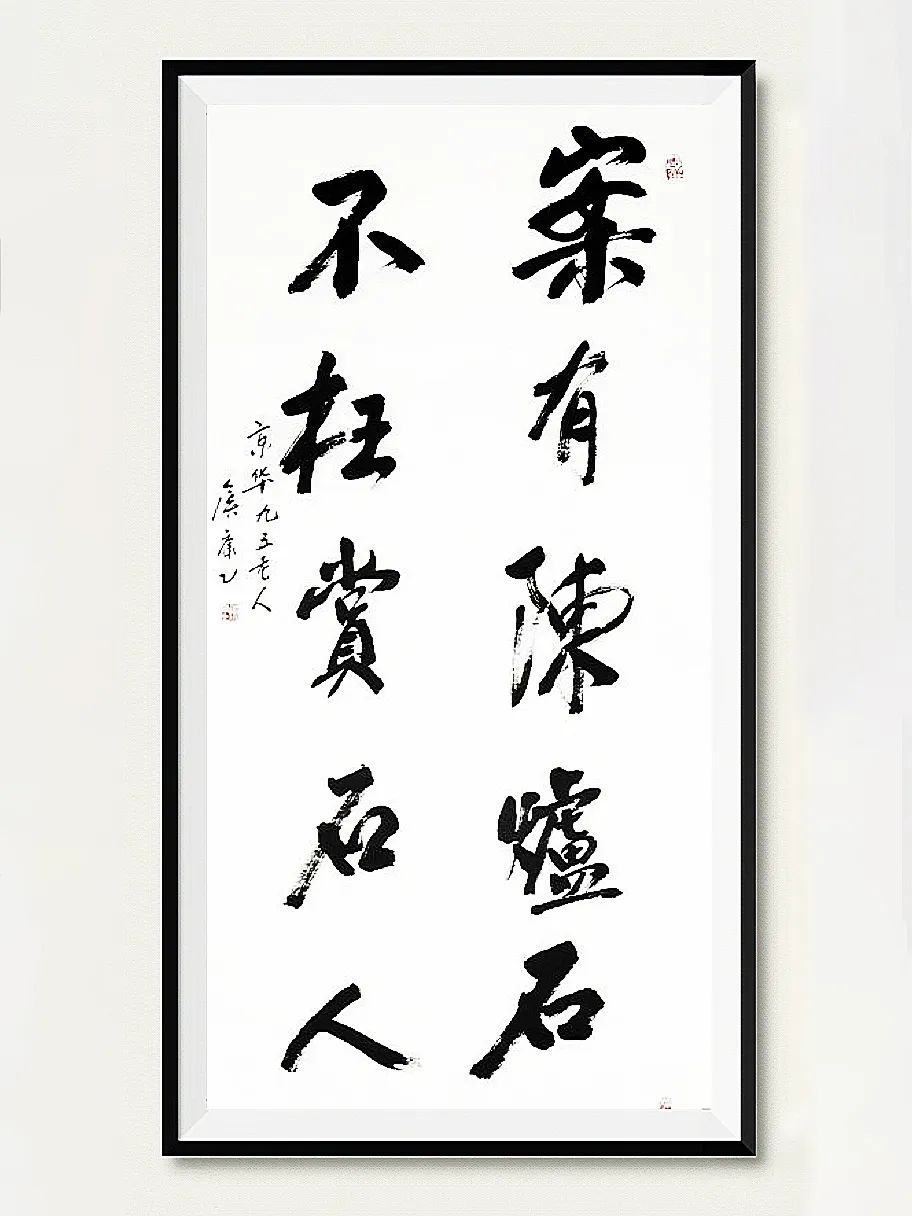 案有陳爐石
不枉賞石人
京华九五老人
虞康